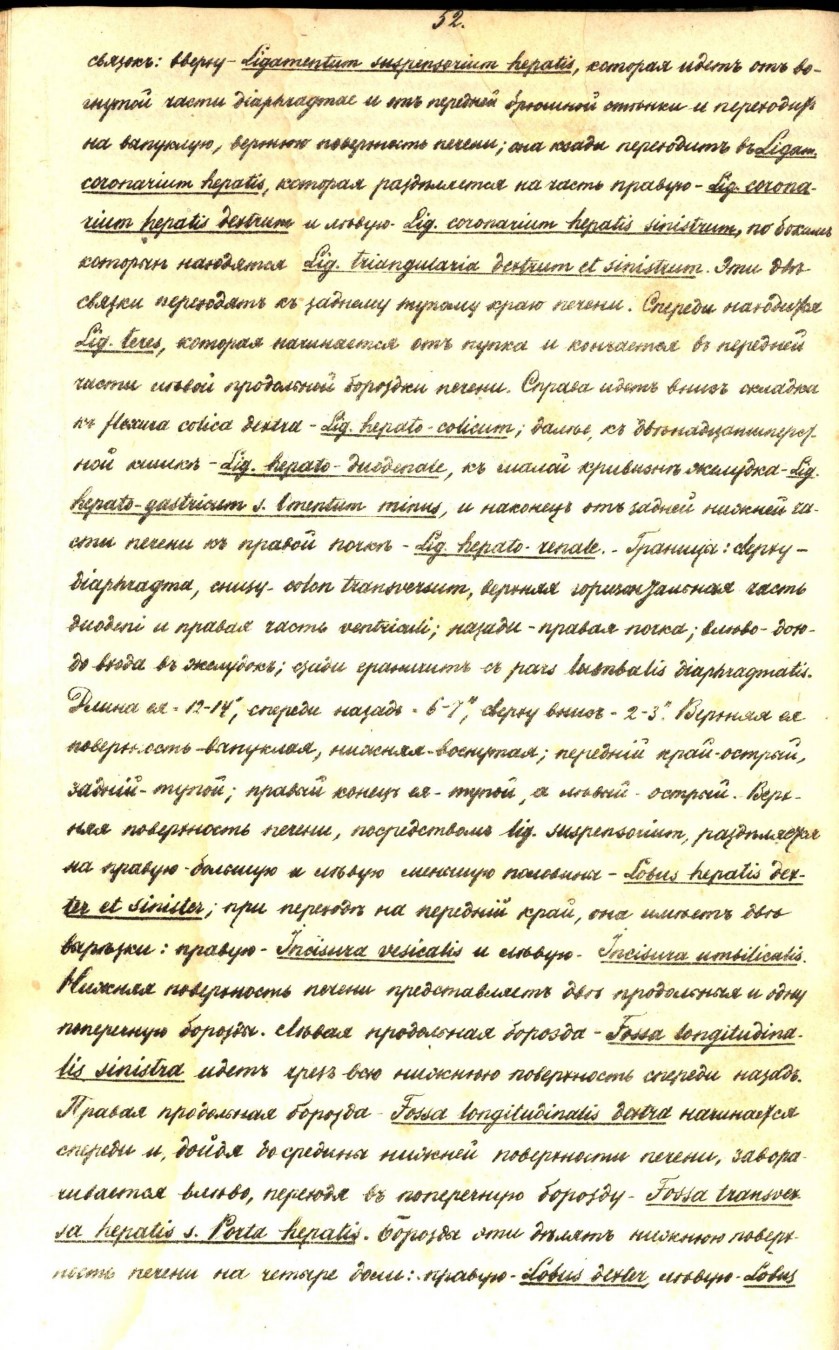 52.
связокъ: вверху - Ligamentum suspensorium hepatis, которая идетъ отъ во-
гнутой части diaphragmae и отъ передней брюшной стѣнки и переходитъ
на выпуклую, верхнюю поверхность печени; она кзади переходитъ въ Ligam.
coronarium hepatis, которая раздѣляется на часть правую - Lig. corona-
rium hepatis dextrum и лѣвую - Lig. coronarium hepatis sinistrum, по бокамъ
которыхъ находятся Lig. triangularia dextrum et sinistrum. Эти двѣ
связки переходятъ къ заднему тупому краю печени. Спереди находится
Lig. teres, которая начинается отъ пупка и кончается въ передней
части лѣвой продольной бороздки печени. Справа идетъ внизъ складка
къ flexura colica dextra - Lig. hepato-colicum; далѣе, къ двѣнадцатиперст-
ной кишкѣ - Lig. hepato-duodenale, къ малой кривизнѣ желудка - Lig.
hepato-gastricum s. Omentum minus, и наконецъ отъ задней нижней ча-
сти печени къ правой почкѣ - Lig. hepato-renale. - Граница: сверху -
diaphragma, снизу - colon transversum, верхняя горизонтальная часть
duodeni и правая часть ventriculi; назади - правая почка; влѣво - дохо-
до входа въ желудокъ; сзади граничитъ съ pars lumbalis diaphragmatis.
Длина ея = 12-14", спереди назадъ = 6-7", сверху внизъ - 2-3". Верхняя ея
поверхность - выпуклая, нижняя - вогнутая; передній край - острый,
задній - тупой; правый конецъ ея - тупой, а лѣвый - острый. Верх-
няя поверхность печени, посредствомъ lig. suspensorium, раздѣляется
на правую - большую и лѣвую меньшую половины - Lobus hepatis dex-
ter et sinister; при переходѣ на передній край, она имѣетъ двѣ
вырѣзки: правую - Incisura vesicalis и лѣвую - Incisura umbilicalis.
Нижняя поверхность печени представляетъ двѣ продольныя и одну
поперечную борозды. Лѣвая продольная борозда - Fossa longitudina-
lis sinistra идетъ чрезъ всю нижнюю поверхность спереди назадъ.
Правая продольная борозда - Fossa longitudinalis dextra начинается
спереди и, дойдя до средины нижней поверхности печени, завора-
чивается влѣво, переходя въ поперечную борозду - Fossa transver-
sa hepatis s. Porta hepatis. Борозды эти дѣлятъ нижнюю поверх-
ность печени на четыре доли: правую - Lobus dexter, лѣвую - Lobus